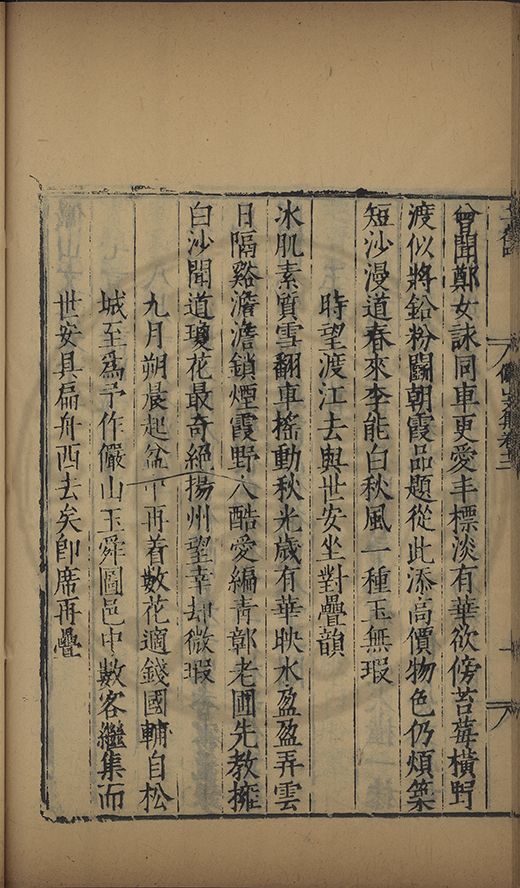 曾聞鄭女詠同車更愛丰標淡有華欲傍苔莓橫野
渡似將鉛粉鬭朝霞品題從此添高價物色仍煩築
短沙漫道春來李能白秋風一種玉無瑕
時望渡江去與世安坐對疊韻
冰肌素質雪翻車搖動秋光歲有華映水盈盈弄雲
日隔谿澹澹鎖煙霞野人酷愛編青鄣老圃先教擁
白沙聞道瓊花最奇絕揚州望幸却微瑕
九月朔晨起盆中再着數花適錢國輔自松
城至爲予作儼山玉舜圖邑中數客繼集而
世安具扁舟西去矣卽席再疊